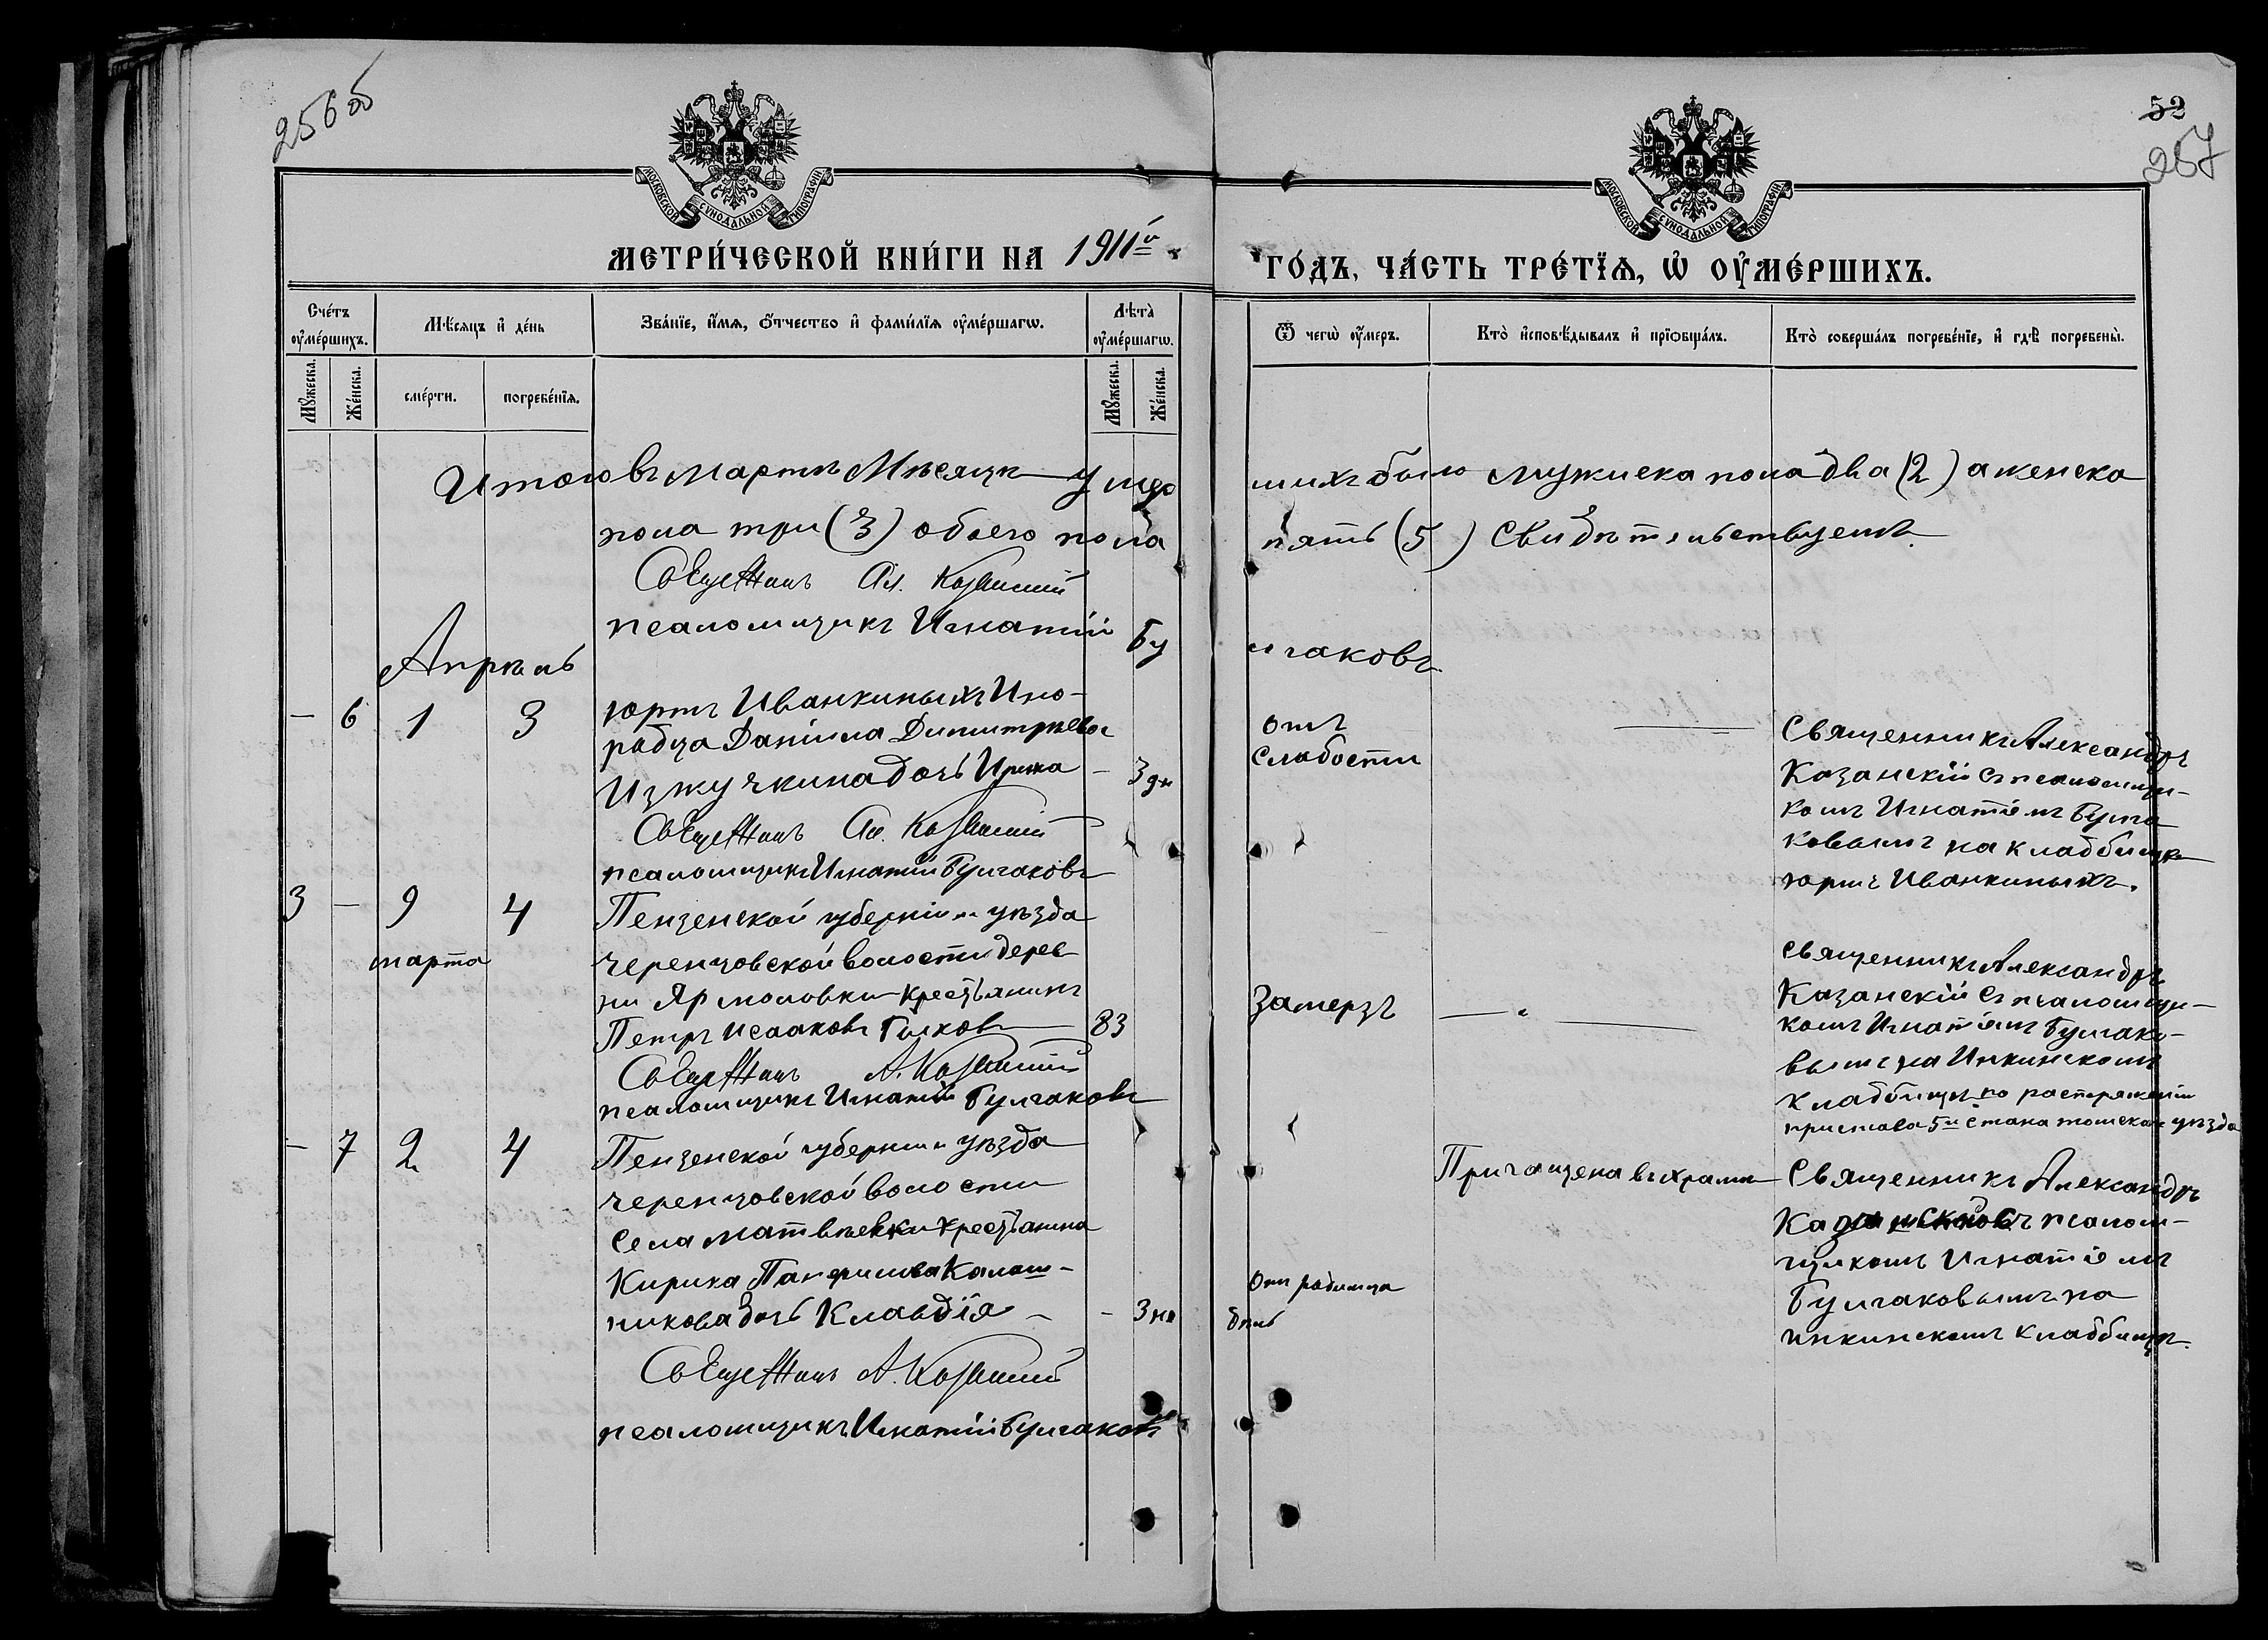 256 об
52
257
МОСКОВСКОЙ СѴНОДАЛЬНОЙ ТИПОГРАФІИ
МОСКОВСКОЙ СѴНОДАЛЬНОЙ ТИПОГРАФІИ
МЕТРИ́ЧЕСКОЙ КНИ́ГИ НА 1911й ГО́ДЪ, ЧА́СТЬ ТРЕ́ТІѦ, Ѡ҆ ОУ҆МЕ́РШИХЪ.
Сче́тъ оу҆ме́ршихъ.
Мѣ́сѧцъ и҆ де́нь
Зва́нїе, и҆́мѧ, ѻ҆́тчество и҆ фами́лїѧ оу҆ме́ршагѡ.
Лѣ́та оу҆ме́ршагѡ.
Ѿ чегѡ̀ оу҆́меръ.
Кто̀ и҆сповѣ́дывалъ и҆ прїѡбща́лъ.
Кто̀ соверша́лъ погребе́нїе, и҆ гдѣ̀ погребены̀.
Мꙋ́жеска.
Же́нска.
сме́рти.
погребе́нїѧ.
Мꙋ́жеска.
Же́нска.
Итого въ Мартѣ Мѣсяцѣ умерших было мужиска пола два (2) а женска
пола три (3) обоего пола пять (5) Свидѣтельствуемъ.
Священникъ Ал. Казанскій
псаломщикъ Игнатій Булгаковъ
Апрѣль
— 6 1 3
юртъ Иванкиныхъ Ино-
родца Даніила Димитріева
Изжучкина дочь Ирина — 3 дн
отъ
слабости
Священникъ Александръ
Казанскій съ псаломщи-
комъ Игнатіемъ Булга
ковымъ на кладбищѣ
юртъ Иванкиныхъ.
Священникъ Ал. Казанскій
псаломщикъ Игнатій Булгаковъ
3 — 9 4
марта
Пензенской губерніи и уѣзда
Черенцовской волости дерев
ни Ярмоловки крестьянинъ
Петръ Исааковъ 83
Замерзъ
— " —
Священникъ Александръ
Казанскій съ псаломщи-
комъ Игнатіемъ Булгако-
вымъ на Инкинскомъ
кладбищѣ по распоряженію
пристава 5го стана томскаго уѣзда
Священникъ А. Казанскій
псаломщикъ Игнатій Булгаковъ
— 7 2 4
Пензенской губерніи и уѣзда
Черенцовской волости
села Матвѣевки крестьянина
Кирика Панфилова Калаш-
никова дочь Клавдія — — 3 нѣ
дѣль
от родимца
Причащена въ храмѣ
Священникъ Александръ
Казанскій съ псалом-
щикомъ Игнатіемъ
Булгаковымъ на
инкинскомъ кладбищѣ.
Священникъ А. Казанскій
псаломщикъ Игнатій Булгаковъ